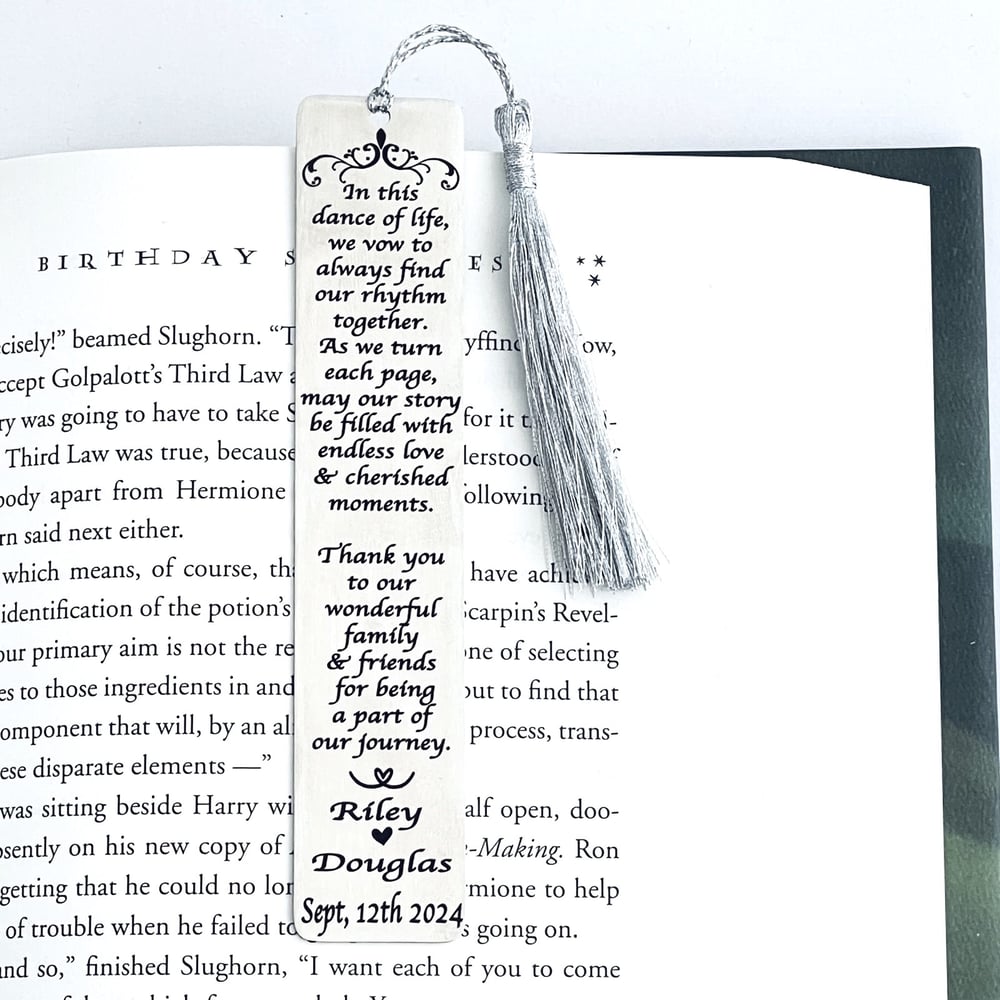 In this
dance of life,
we vow to
always find
our rhythm
together.
As we turn
each page,
may our story
be filled with
endless love
& cherished
moments.
Thank you
to our
wonderful
family
& friends
for being
a part of
our journey.
Riley
Douglas
Sept, 12th 2024
BIRTHDAY S ES
cisely!” beamed Slughorn. “T yffind ow,
ccept Golpalott’s Third Law
ry was going to have to take S for it t -
Third Law was true, because lerstood
body apart from Hermione following
rn said next either.
which means, of course, th have achi
identification of the potion’s Scarpin’s Revel-
our primary aim is not the re one of selecting
es to those ingredients in and out to find that
omponent that will, by an al process, trans-
ese disparate elements —”
was sitting beside Harry wi alf open, doo-
sently on his new copy of -Making. Ron
getting that he could no lon rmione to help
of trouble when he failed to s going on.
nd so,” finished Slughorn, “I want each of you to come